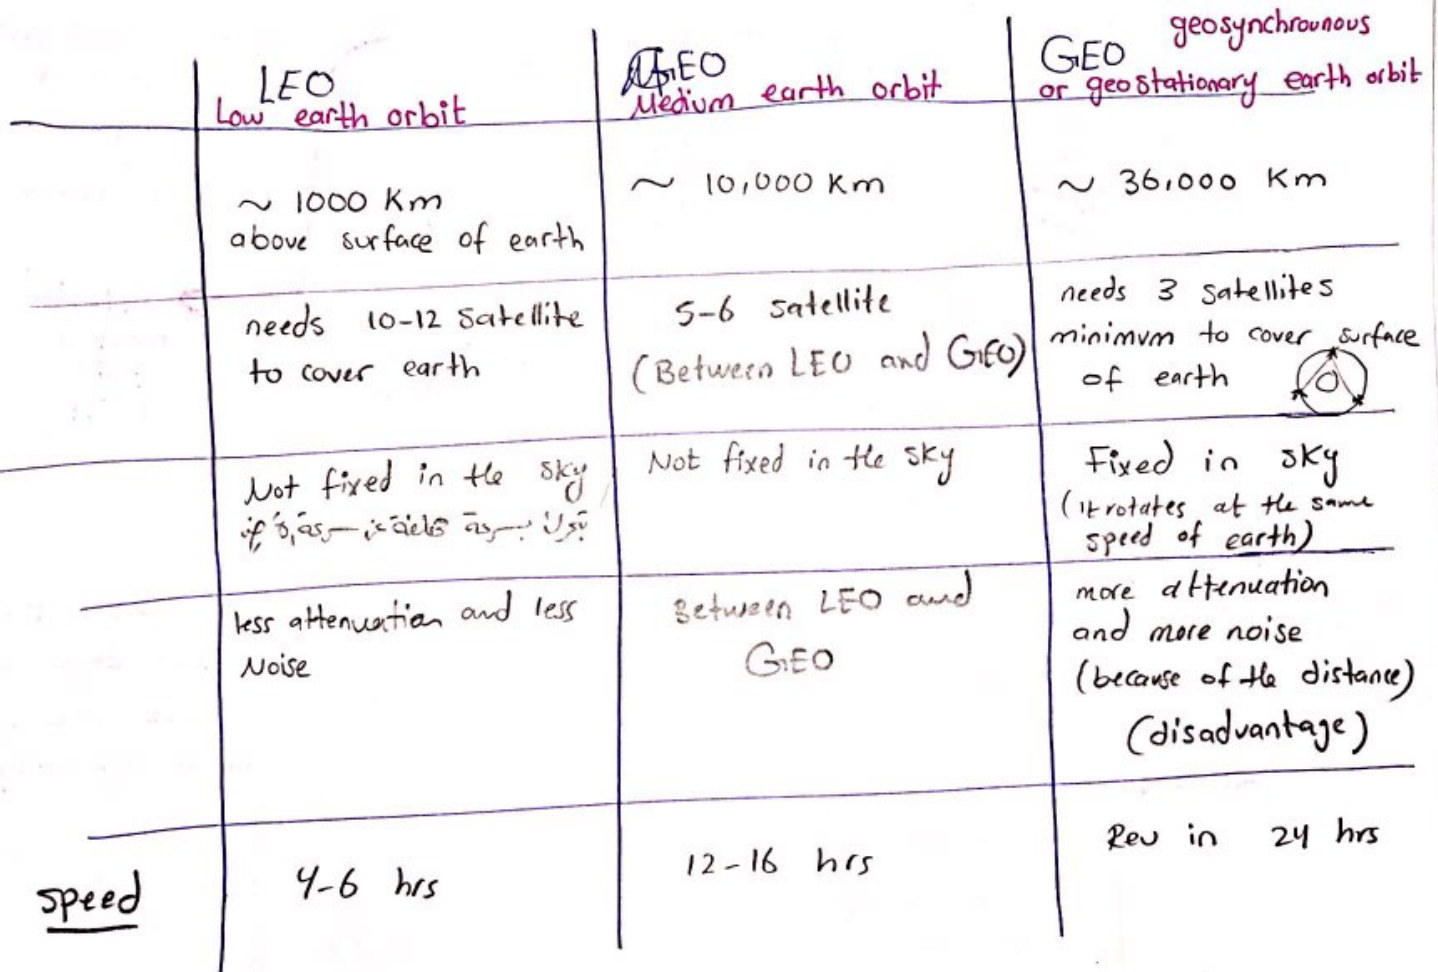 LEO
Low earth orbit
MEO
Medium earth orbit
geosynchrounous
GEO
or geostationary earth orbit
~ 1000 Km
above surface of earth
~ 10,000 Km
~ 36,000 Km
needs 10-12 satellite
to cover earth
5-6 satellite
(Between LEO and GEO)
needs 3 satellites
minimum to cover surface
of earth
Not fixed in the sky
بسرعة
Not fixed in the sky
Fixed in sky
(it rotates at the same
speed of earth)
less attenuation and less
Noise
Between LEO and
GEO
more attenuation
and more noise
(because of the distance)
(disadvantage)
speed
4-6 hrs
12-16 hrs
Rev in 24 hrs